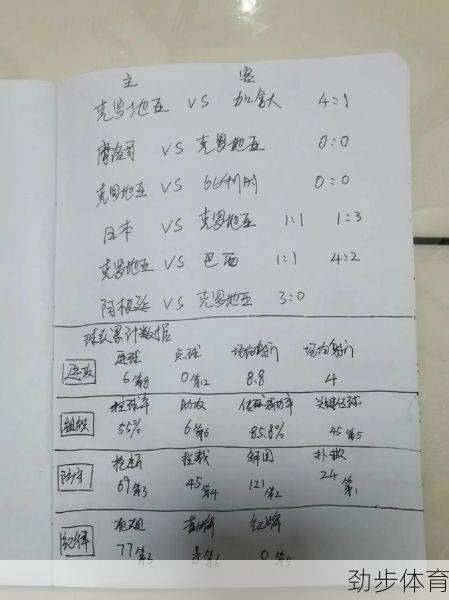 主 客
克罗地亚 VS 加拿大 4:1
摩洛哥 VS 克罗地亚 0:0
克罗地亚 VS 比利时 0:0
日本 VS 克罗地亚 1:1 1:3
克罗地亚 VS 巴西 1:1 4:2
阿根廷 VS 克罗地亚 3:0
球队累计数据
进球 点球 场均射门 场均射门
进攻 6第8 0第12 8.8 4
控球率 助攻 传球成功率 关键传球
组织 55% 6第6 85.8% 45第5
抢断 拦截 解围 扑救
防守 69第3 45第4 121第2 24第1
犯规 黄牌 红牌
纪律 77第3 8第6 0第5
劲步体育